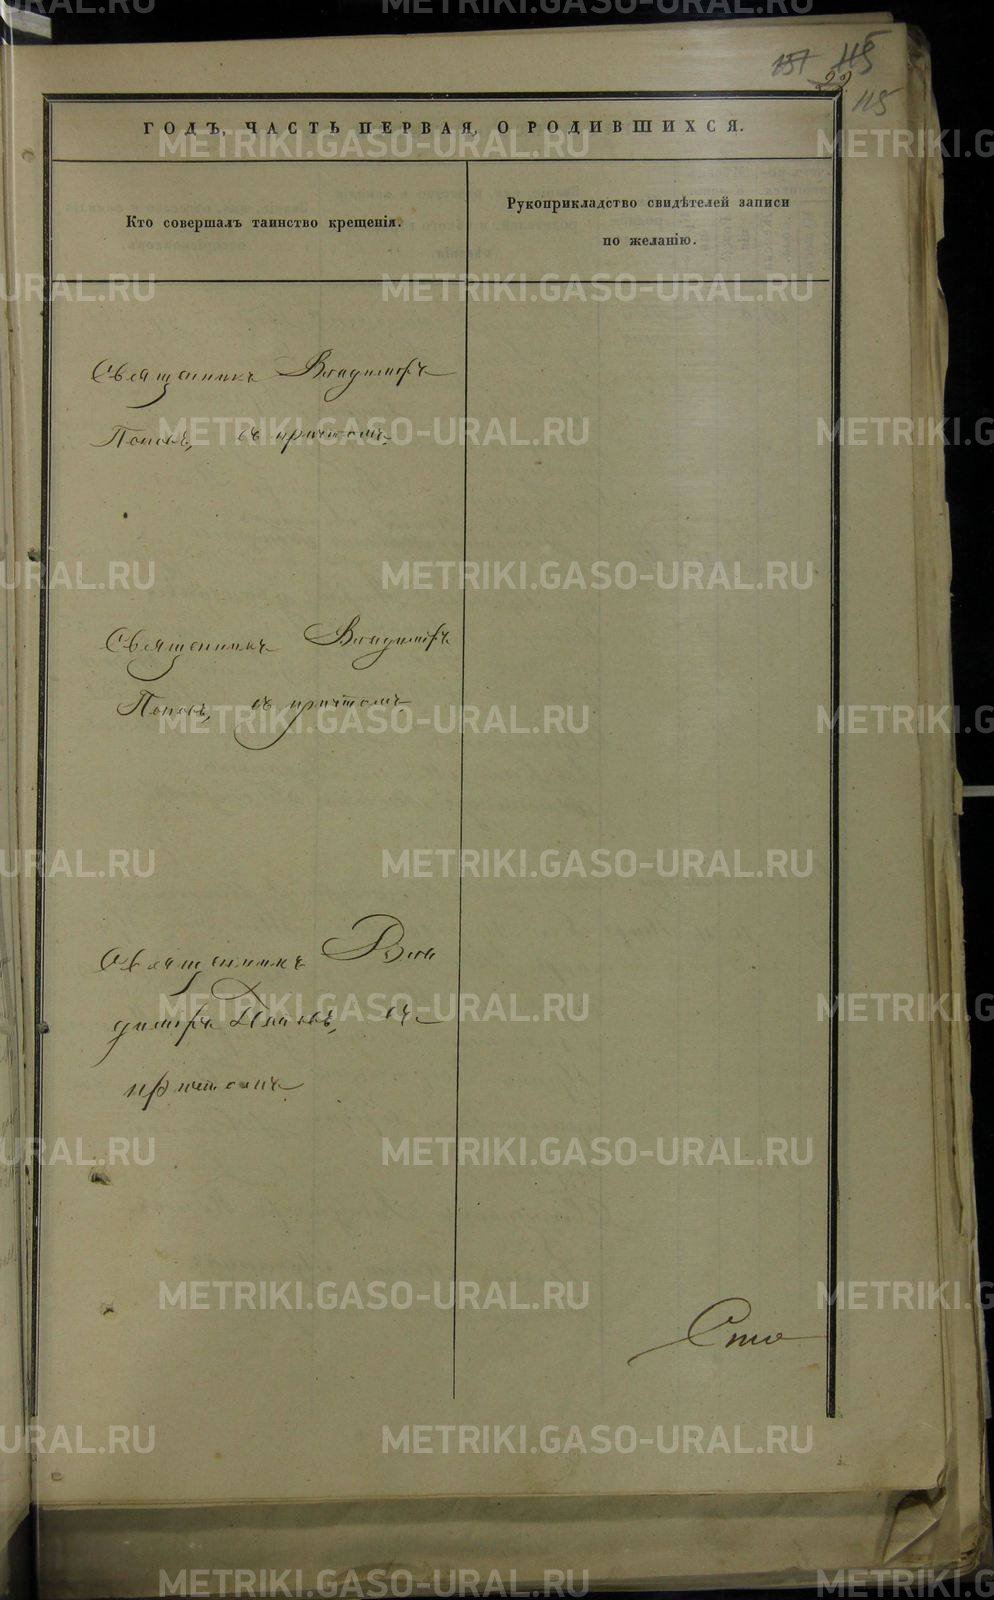 157 115
22
115
ГОДЪ, ЧАСТЬ ПЕРВАЯ, О РОДИВШИХСЯ.
Кто совершалъ таинство крещенія.
Рукоприкладство свидѣтелей записи
по желанію.
Священникъ Владиміръ
Поповъ, съ причтомъ.
Священникъ Владиміръ
Поповъ, съ причтомъ.
Священникъ Вла
диміръ Поповъ, съ
причтомъ.
METRIKI.GASO-URAL.RU